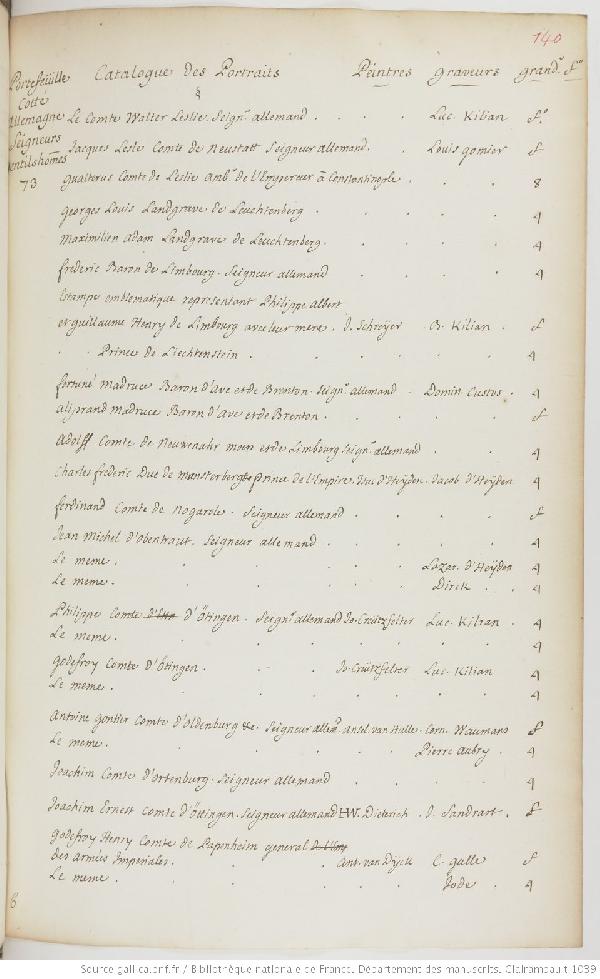 140
Portefeüille Cotté Allemagne Seigneurs Gentilshomes 73
Catalogue des Portraits Peintres graveurs grand.r f.o
§
Le Comte Walter Leslie Seign.r allemand . . . . Luc Kilian f.o
Jacques Lesle Comte de Neustatt Seigneur allemand. . Louis gomier f
gualterus Comte de Leslie Amb.r de l'Empereur a Constantinople . . . 8
Georges Louis Landgrave de Leuchtenberg . . . . . 4
Maximilien Adam Landgrave de Leuchtenberg. . . . . 4
frederic Baron de Limbourg. Seigneur allemand . . . . 4
Estampe emblematique representant Philippe Albert
et guillaume Henry de Limbourg avec leur mere. J. Schreyer B. Kilian . f
. . Prince de Liechtenstein . . . . . 4
fortuné Madruce Baron d'Ave et de Brenton. Seign.r allemand . Domin Custos . 4
Aliprand Madruce Baron d'Ave et de Brenton . . . . . f
Adolff Comte de Neuwenahr et de Limbourg. Seign.r allemand . . 4
Charles frederic Duc de Munsterberg et Prince de l'Empire. d'Heyden. Jacob d'Heyden 4
ferdinand Comte de Nogarole. Seigneur allemand . . . . f
Jean Michel d'Obentraut. Seigneur allemand . . . . 4
Le meme . . . . . Lazar. d'Heyden 4
Le meme . . . . . Dirck . . 4
Philippe Comte d'Ötingen. Seign.r allemand Jo. Crützfelter Luc. Kilian . 4
Le meme . . . . . . 4
godefroy Comte d'Ötingen. . . . Jo. Crützfelter Luc. Kilian 4
Le meme . . . . . . 4
Antoine gontier Comte d'Oldenburg &c. Seigneur allem.d Ansel. van Halle. Corn. Waumans f
Le meme. . . . . Pierre Aubry . 4
Joachim Comte d'Ortenburg. Seigneur allemand . . . . 4
Joachim Ernest Comte d'Öttingen. Seigneur allemand H.W. Dieterich . J. Sandrart . f
godefroy Henry Comte de Papenheim general
des armées Imperiales. . . . Ant. van Dyck C. galle f
Le meme . . . . . Jode . 4
Source gallica.bnf.fr / Bibliothèque nationale de France. Département des manuscrits. Clairambault 1039